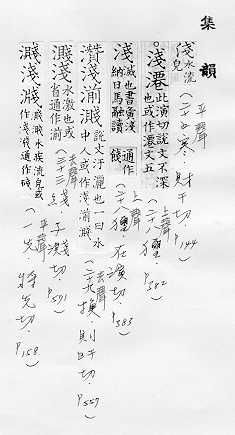 集韻
淺 水流皃 (平聲 二十五寒·財干切·P144)
淺 此演切說文不深也或作 文五 (上聲 二八獮·P382)
淺 滅也書寅淺納日馬融讀 通作餞 (上聲 二八獮·在演切·P383)
灒淺湔濺 說文汙灑也一曰水中人或作淺湔濺 (去聲 二九換 則旰切·P557)
濺淺 水激也或省通作湔 (去聲 三十三線·子淺切·P571)
濺淺 濺濺水疾流皃或作淺 通作 (平聲 一先 將先切·P158)